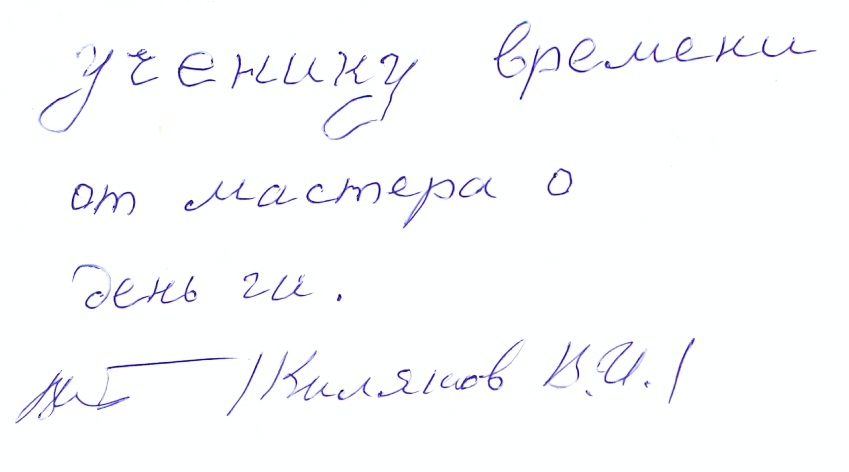 ученику времени
от мастера о
день ги.
/Киляков В.И./